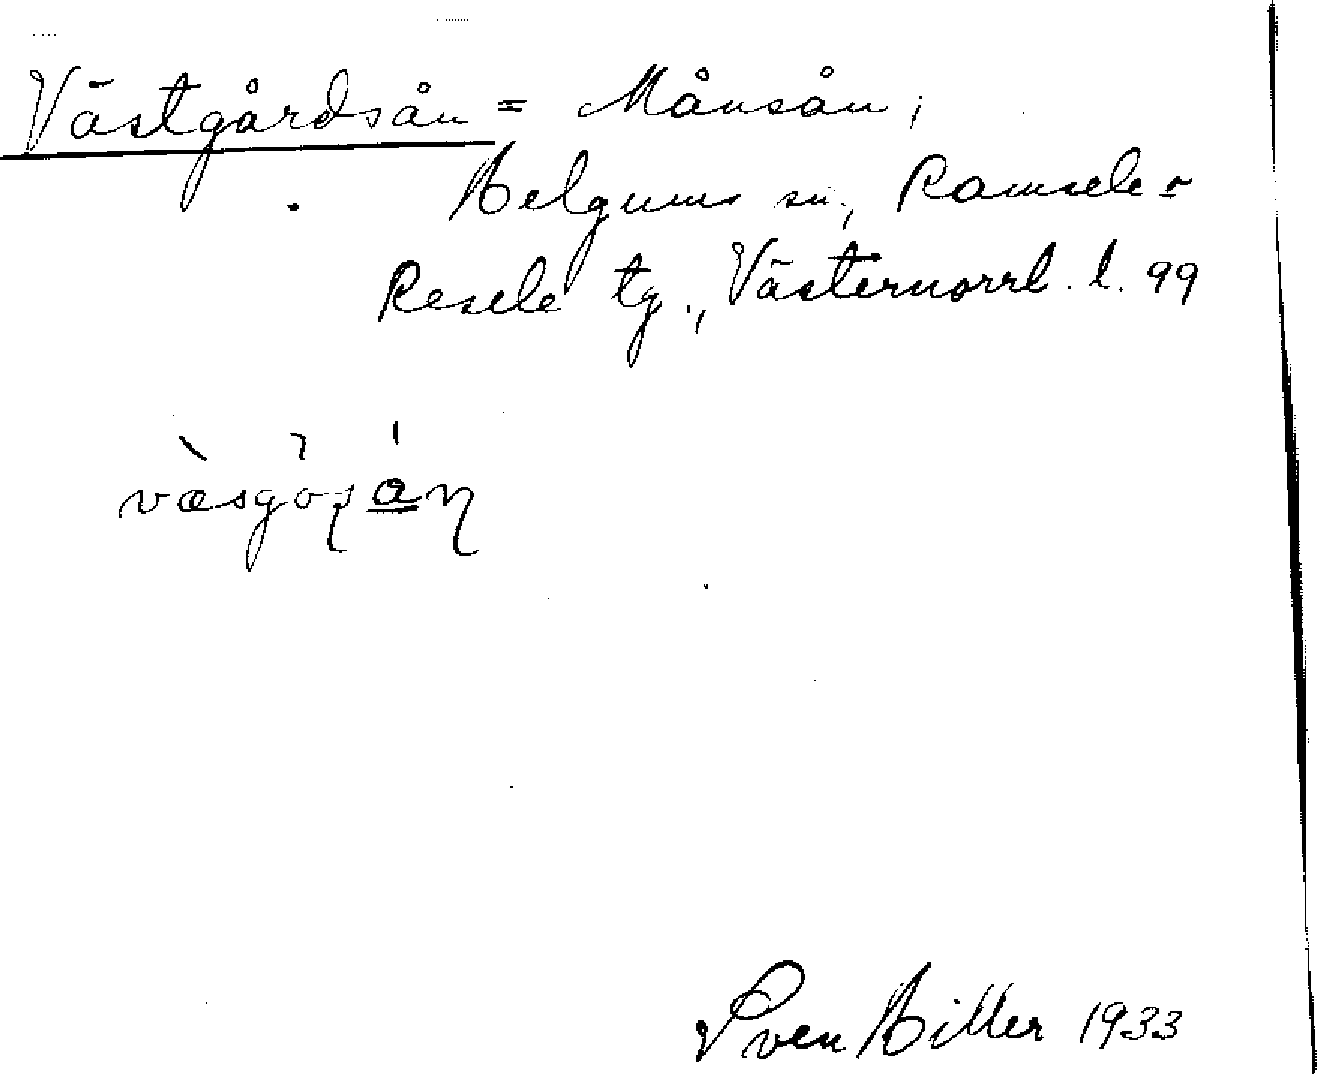 Västgårdsån = Månsån;
Helgums sn., Ramsele-
Resele tg., Västernorrl. l. 99
Sven Hiller 1933